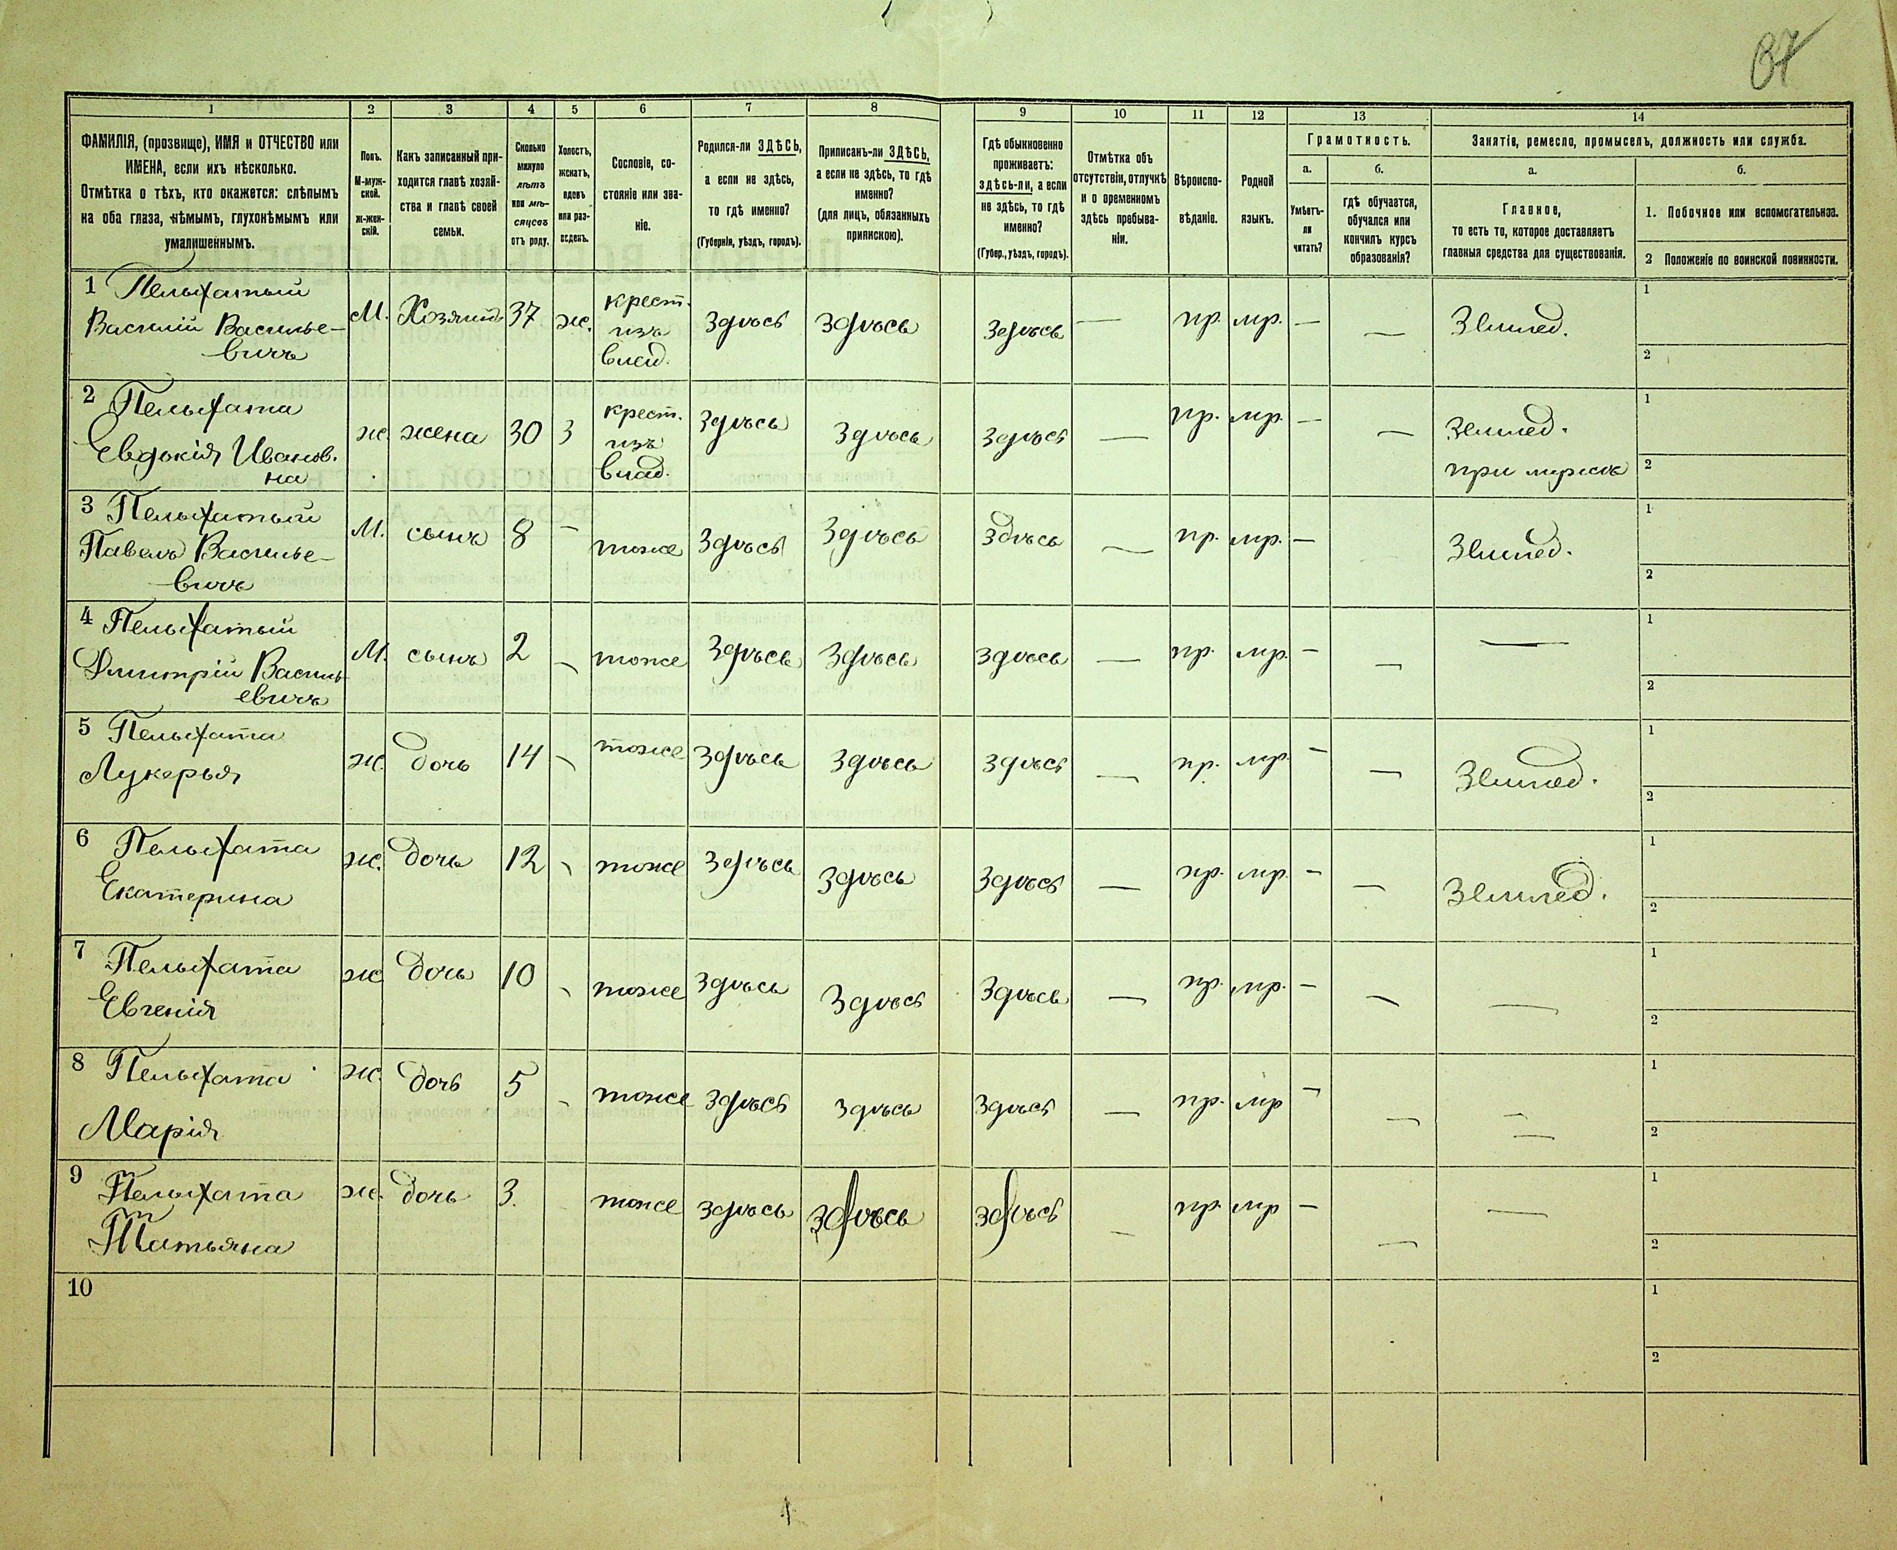 37
1 2 3 4 5 6 7 8 9 10 11 12 13 14
ФАМИЛІЯ, (прозвище), ИМЯ и ОТЧЕСТВО или
ИМЕНА, если ихъ нѣсколько.
Отмѣтка о тѣхъ, кто окажется: слѣпымъ
на оба глаза, нѣмымъ, глухонѣмымъ или
умалишеннымъ.
Полъ.
М-муж-
ской.
ж-жен-
скій.
Какъ записанный при-
ходится главѣ хозяй-
ства и главѣ своей
семьи.
Сколько
минуло
лѣтъ
или мѣ-
сяцевъ
отъ роду.
Холостъ,
женатъ,
вдовъ
или раз-
веденъ.
Сословіе, со-
стояніе или зва-
ніе.
Родился-ли ЗДѢСЬ,
а если не здѣсь,
то гдѣ именно?
(Губернія, уѣздъ, городъ).
Приписанъ-ли ЗДѢСЬ,
а если не здѣсь, то гдѣ
именно?
(для лицъ, обязанныхъ
припискою).
Гдѣ обыкновенно
проживаетъ:
здѣсь-ли, а если
не здѣсь, то гдѣ
именно?
(Губер., уѣздъ, городъ).
Отмѣтка объ
отсутствіи, отлучкѣ
и о временномъ
здѣсь пребыва-
ніи.
Вѣроиспо-
вѣданіе.
Родной
языкъ.
Грамотность.
а.
Умѣетъ-
ли
читать?
б.
гдѣ обучается,
обучался или
кончилъ курсъ
образованія?
Занятія, ремесло, промыселъ, должность или служба.
а.
Главное,
то есть то, которое доставляетъ
главныя средства для существованія.
б.
1. Побочное или вспомогательное.
2 Положеніе по воинской повинности.
1 Пелыхатый
Василій Василье-
вичъ
М. Хозяинъ 37 ж.
крест.
изъ
влад.
здѣсь здѣсь здѣсь — пр. мр. — — Землед.
1
2
2 Пелыхата
Евдокія Иванов.
на
ж. жена 30 З
крест.
изъ
влад.
здѣсь здѣсь здѣсь — пр. мр. — — Землед.
при мужѣ
1
2
3 Пелыхатый
Павелъ Василье-
вичъ
М. сынъ 8 – тоже здѣсь здѣсь здѣсь — пр. мр. — Землед.
1
2
4 Пелыхатый
Дмитрій Василь-
евичъ
М. сынъ 2 – тоже здѣсь здѣсь здѣсь — пр. мр. – — —
1
2
5 Пелыхата
Лукерья
ж. дочь 14 – тоже здѣсь здѣсь здѣсь — пр. мр. – — Землед.
1
2
6 Пелыхата
Екатерина
ж. дочь 12 – тоже здѣсь здѣсь здѣсь — пр. мр. – — Землед.
1
2
7 Пелыхата
Евгенія
ж дочь 10 – тоже здѣсь здѣсь здѣсь — пр. мр. – — —
1
2
8 Пелыхата
Марія
ж. дочь 5 – тоже здѣсь здѣсь здѣсь — пр. мр – — —
1
2
9 Пелыхата
Татьяна
ж. дочь 3. тоже здѣсь здѣсь здѣсь — пр. мр – — —
1
2
10
1
2